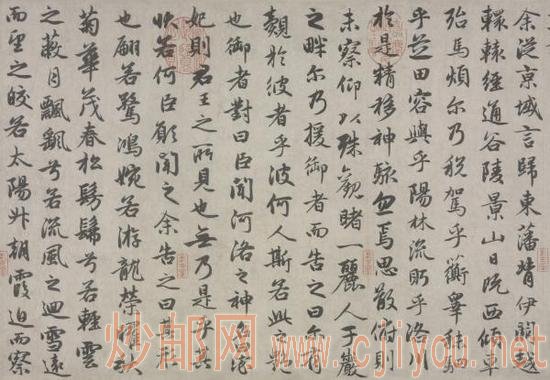 余從京域言歸東藩背伊闕越
轘轅經通谷陵景山日既西傾車
殆馬煩尔乃税駕乎蘅皋秣駟
乎芝田容與乎陽林流眄乎洛川
於是精移神駭忽焉思散俯則
未察仰以殊觀睹一麗人于巖
之畔尔乃援御者而告之曰尔有
覿於彼者乎彼何人斯若此之艷
也御者對曰臣聞河洛之神名宓
妃則君王之所見也無乃是乎其
狀若何臣願聞之余告之曰其形
也翩若驚鴻婉若游龍榮曜秋
菊華茂春松髣髴兮若輕雲
之蔽月飄颻兮若流風之迴雪遠
而望之皎若太陽升朝霞迫而察
炒邮网 www.cjiyou.net